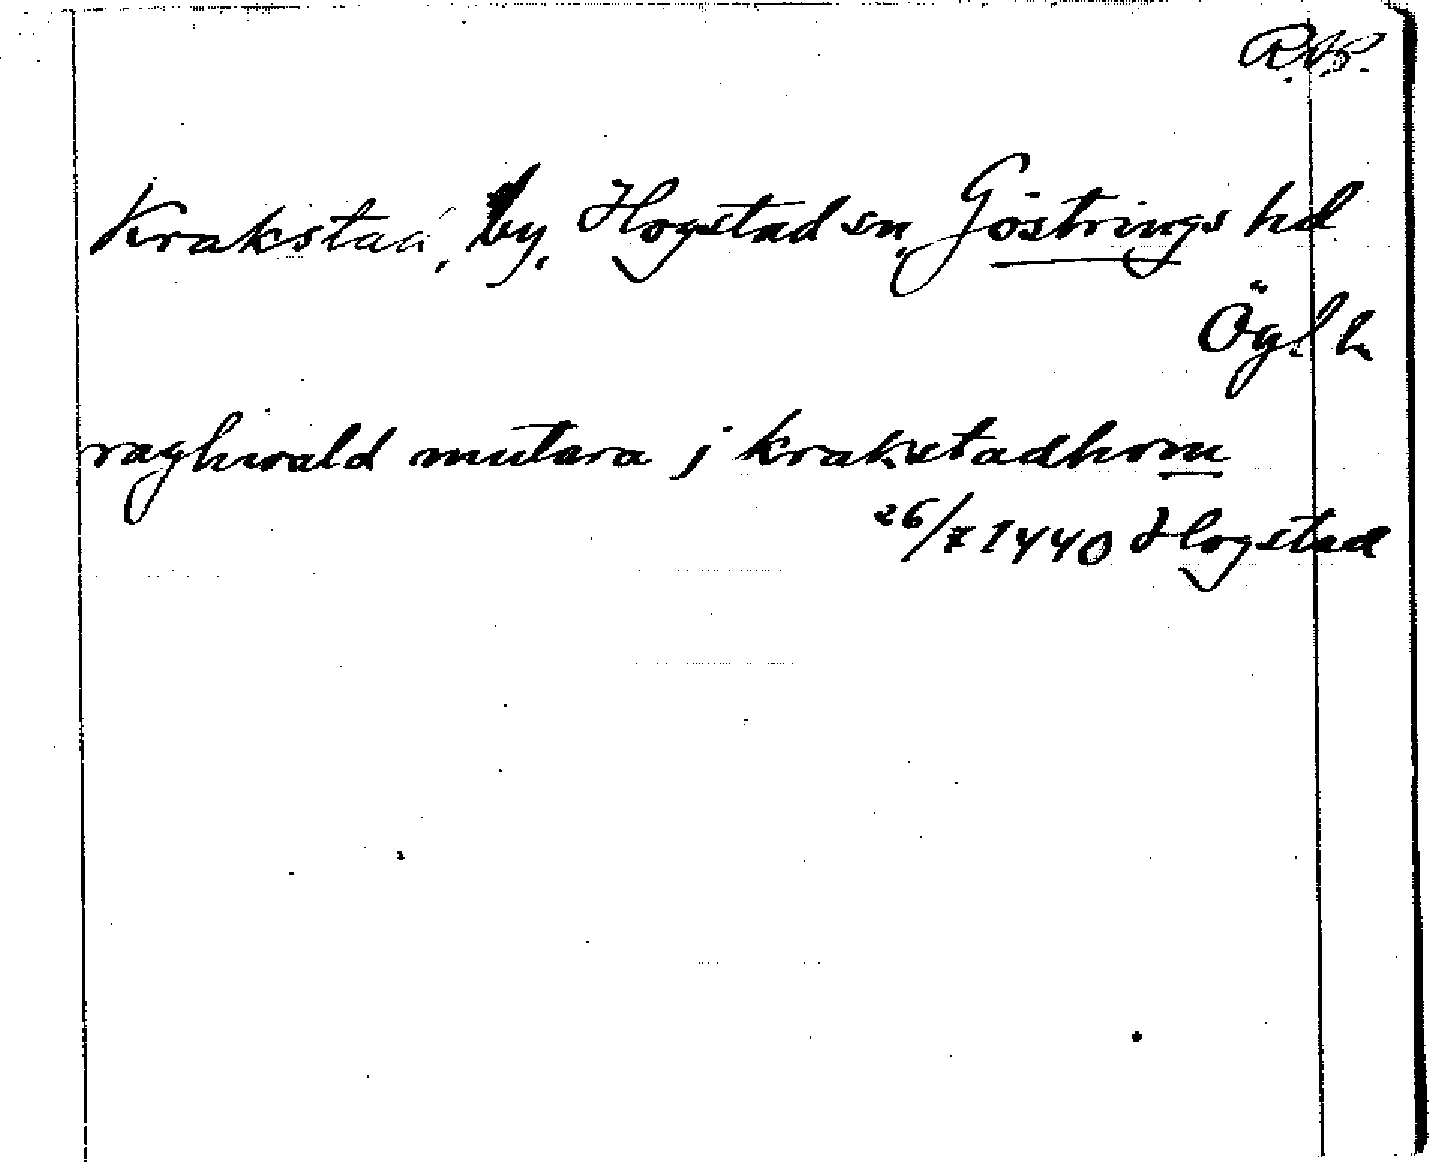 R.A.P.
Krakstad, by, Hogstad sn, Göstrings hd
Ögl h
raghwald mutara j krakstadhom
26/7 1440 Hogstad